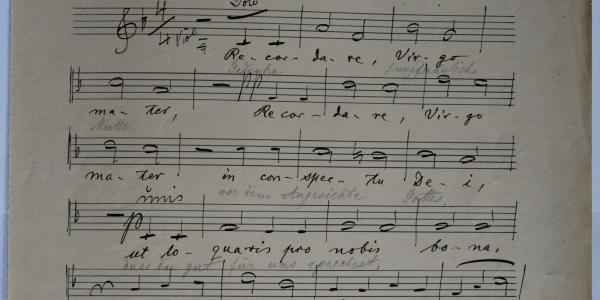 Solo
4/4 Viol
Re-cor-da-re, Vir-go
Gedenke jungfräuliche
ma-ter, Re cor-da-re, Vir-go
Mutter
ma-ter in con-spec-tu De-i,
vor dem Angesichte Gottes,
unis
p
ut lo-quaris pro nobis bo-na,
dass du gut für uns sprechest,